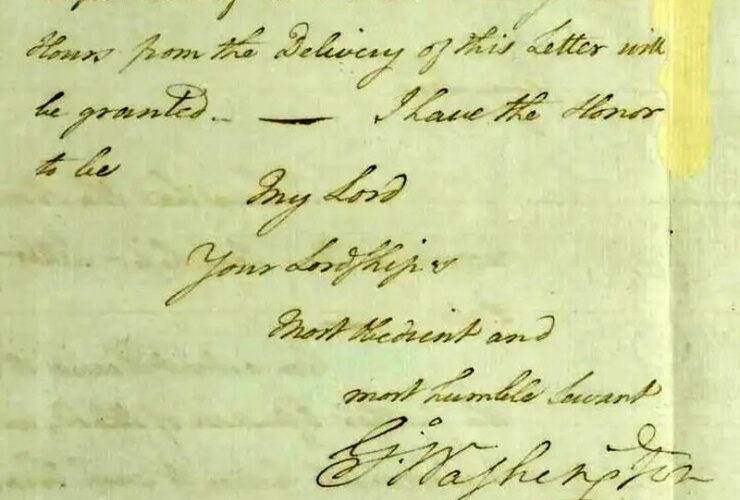 Hours from the Delivery of this Letter will
be granted. — I have the Honor
to be
My Lord
Your Lordship's
Most Obedient and
most humble Servant
Go: Washington